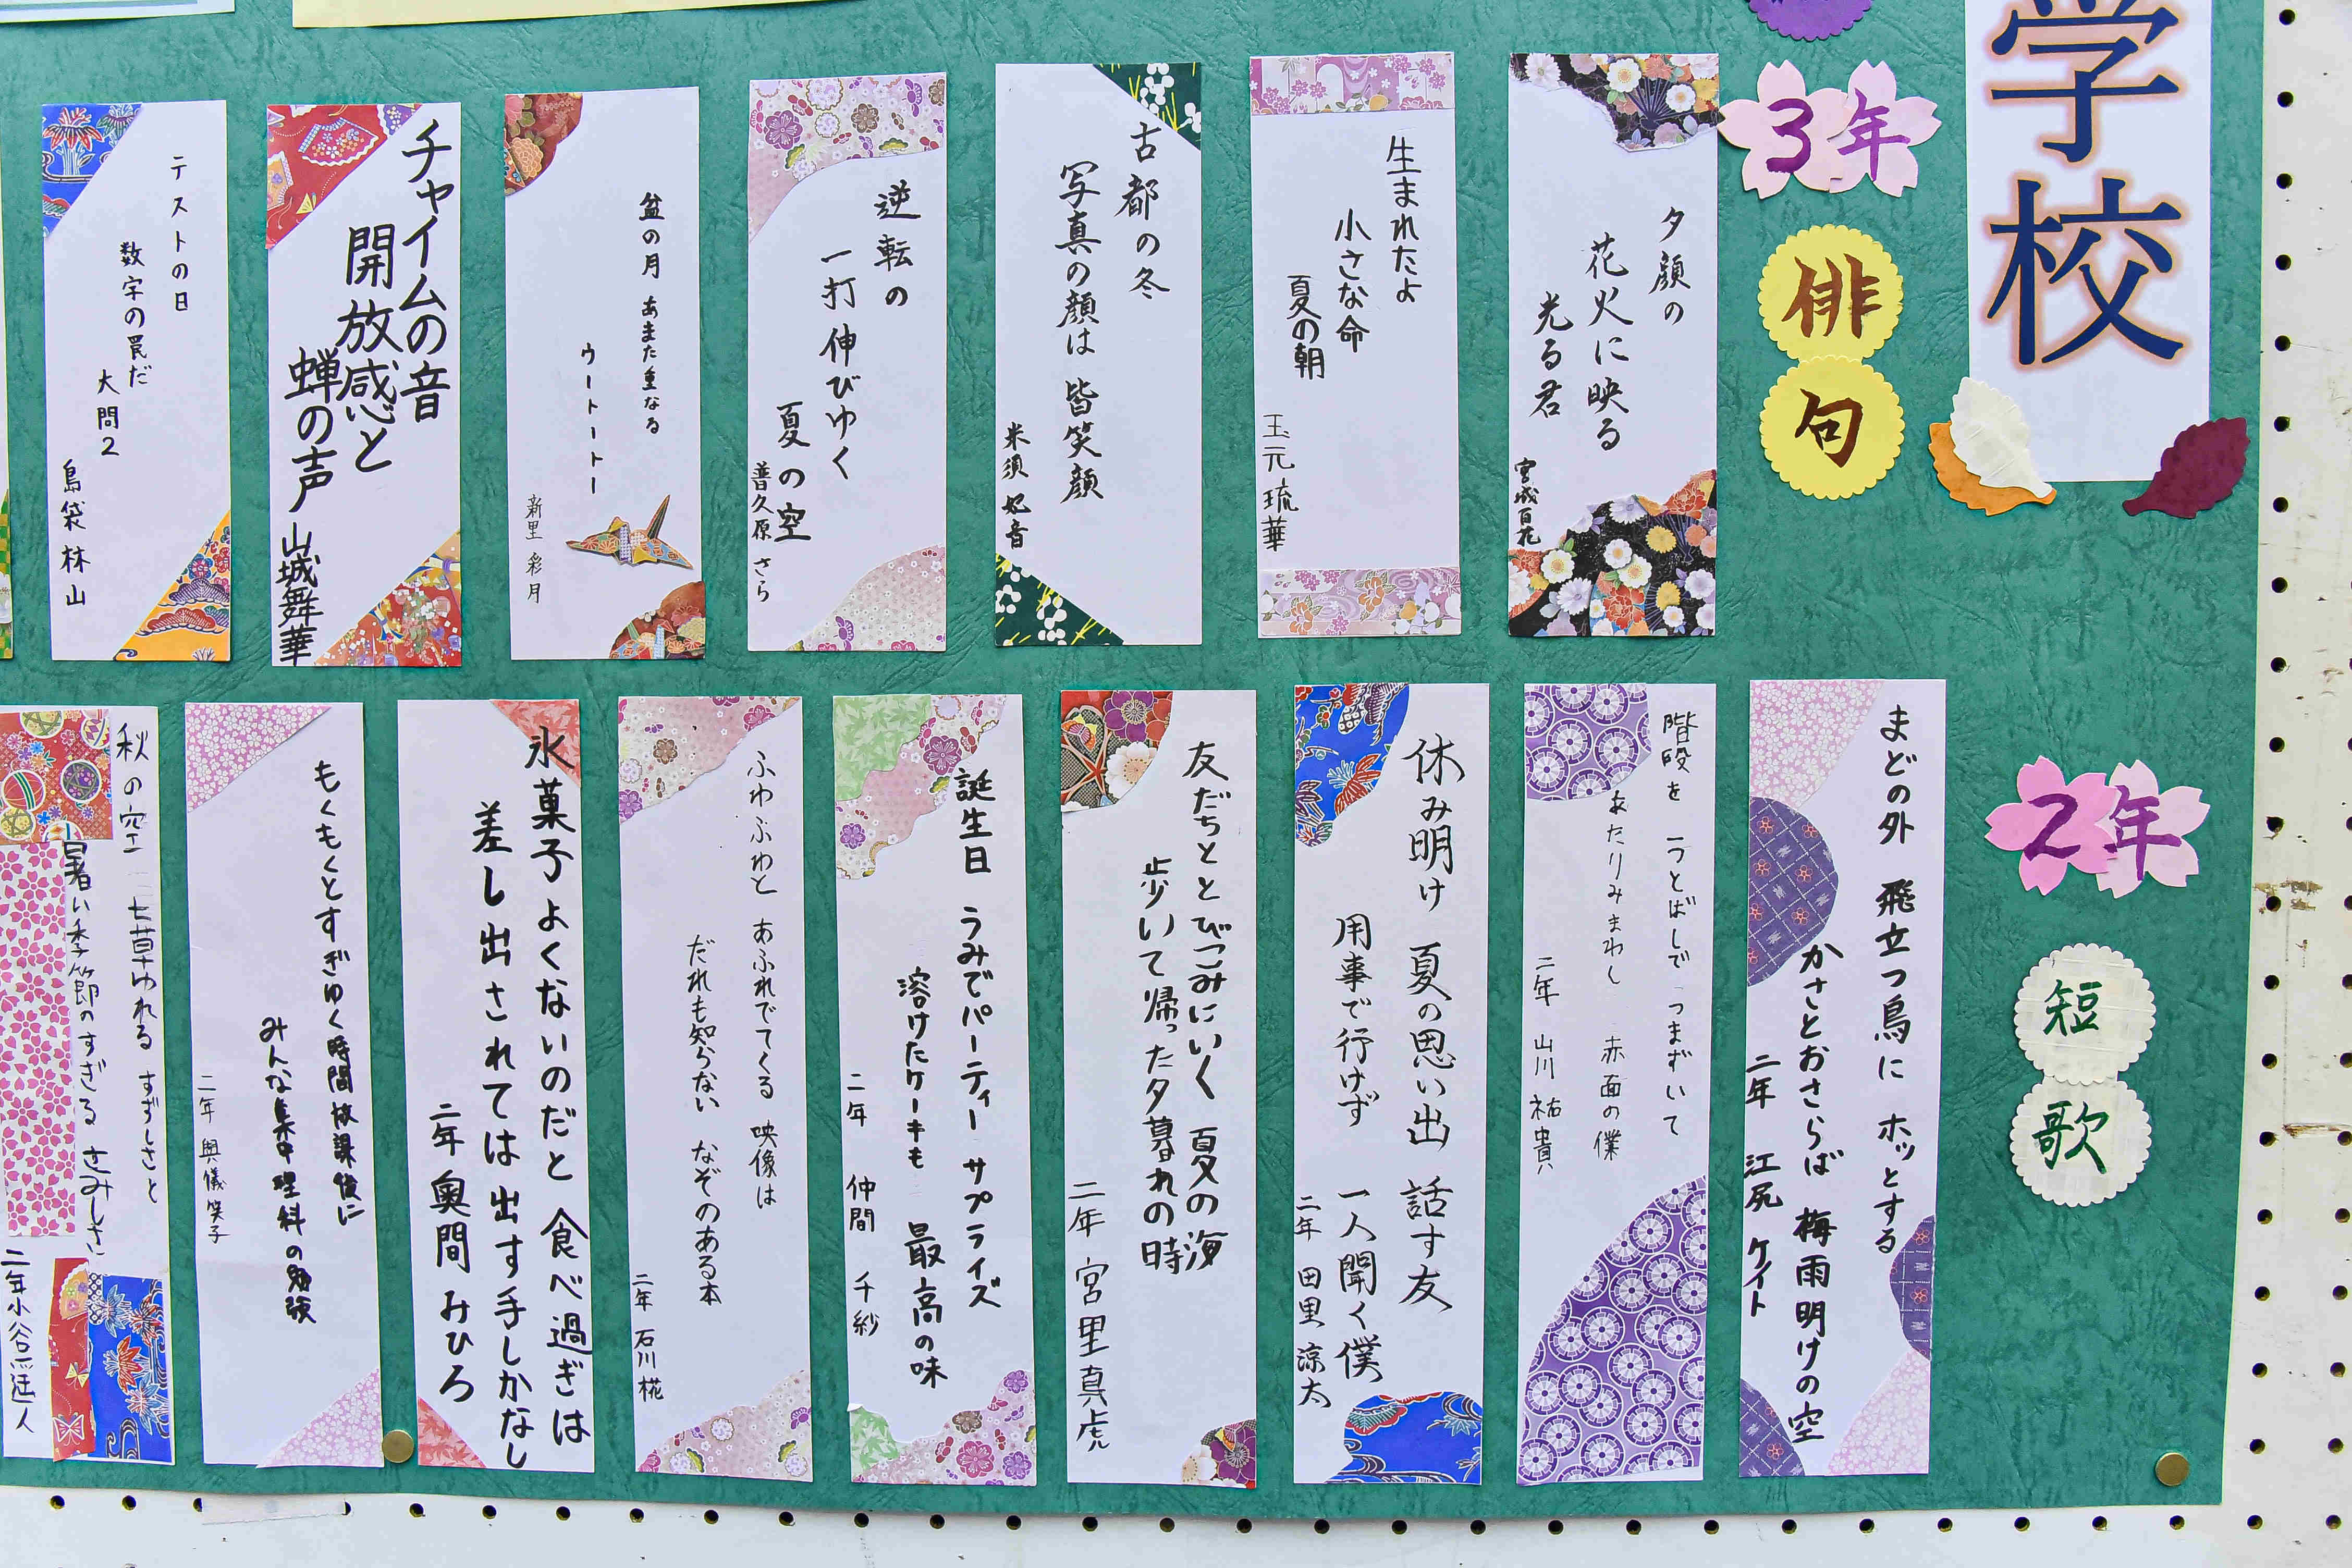 学校
3年
俳句
夕顔の
花火に映る
光る君
宮城百花
生まれたよ
小さな命
夏の朝
玉元琉華
古都の冬
写真の顔は 皆笑顔
米須 妃音
逆転の
一打 伸びゆく
夏の空
普久原 さら
盆の月 あまた重なる
ウートートー
新里 彩月
チャイムの音
開放感と
蝉の声
山城舞華
テストの日
数字の罠だ
大問2
島袋 林山
2年
短歌
まどの外 飛立つ鳥に ホッとする
かさとおさらば 梅雨明けの空
二年 江尻 ケイト
階段を 一つとばしで つまずいて
あたりみまわし 赤面の僕
二年 山川 祐貴
休み明け 夏の思い出 話す友
用事で行けず 一人聞く僕
二年 田里 涼太
友だちととびこみにいく 夏の海
歩いて帰った夕暮れの時
二年 宮里真虎
誕生日 うみでパーティー サプライズ
溶けたケーキも 最高の味
二年 仲間 千紗
ふわふわと あふれでてくる 映像は
だれも知らない なぞのある本
二年 石川 椛
氷菓子よくないのだと 食べ過ぎは
差し出されては出す手しかなし
二年 奥間 みひろ
もくもくとすぎゆく時間放課後に
みんな集中理科の勉強
二年 與儀笑子
秋の空 七草ゆれる すずしさと
暑い季節のすぎる さみしさ
二年 小谷 人